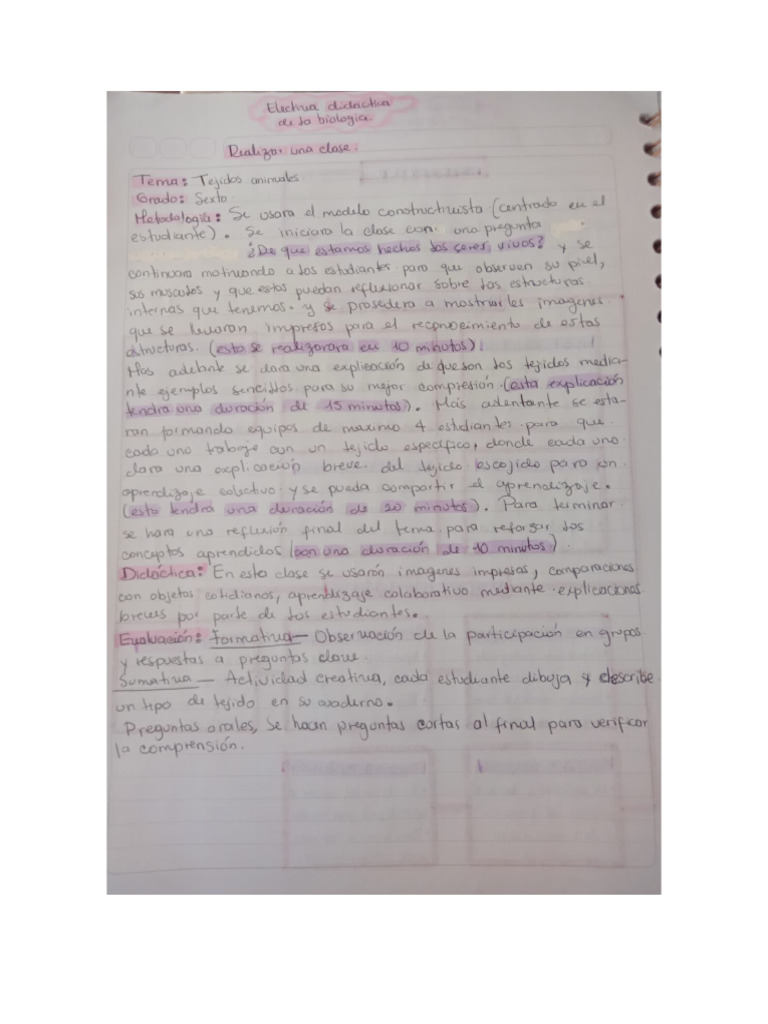 Electiva didactica
de la biologia.
Realizar una clase.
Tema: Tejidos animales.
Grado: Sexto
Metodología: Se usara el modelo constructivista (centrado en el
estudiante). Se iniciara la clase con una pregunta
¿De que estamos hechos los seres vivos? y se
continuara motivando a los estudiantes para que observen su piel,
sus musculos y que estos puedan reflexionar sobre las estructuras
internas que tenemos. y se prosedera a mostrarles imagenes
que se llevaran impresas para el reconocimiento de estas
estructuras. (esto se realizara en 10 minutos).
Mas adelante se dara una explicación de que son los tejidos media-
nte ejemplos sencillos para su mejor compresión. (esta explicación
tendra una duración de 15 minutos). Mas adentante se esta-
ran formando equipos de maximo 4 estudiantes para que
cada uno trabaje con un tejido especifico, donde cada uno
dara una explicación breve del tejido escojido para un
aprendizaje colectivo y se pueda compartir el aprendizaje.
(esto tendra una duración de 20 minutos). Para terminar
se hara una reflexión final del tema para reforzar los
conceptos aprendidos (con una duración de 10 minutos).
Didáctica: En esta clase se usarán imagenes impresas, comparaciones
con objetos cotidianos, aprendizaje colaborativo mediante explicaciones
breves por parte de los estudiantes.
Evaluación: Formativa— Observación de la participación en grupos
y respuestas a preguntas clave.
Sumativa — Actividad creativa, cada estudiante dibuja y describe
un tipo de tejido en su cuaderno.
Preguntas orales, se hacen preguntas cortas al final para verificar
la comprensión.